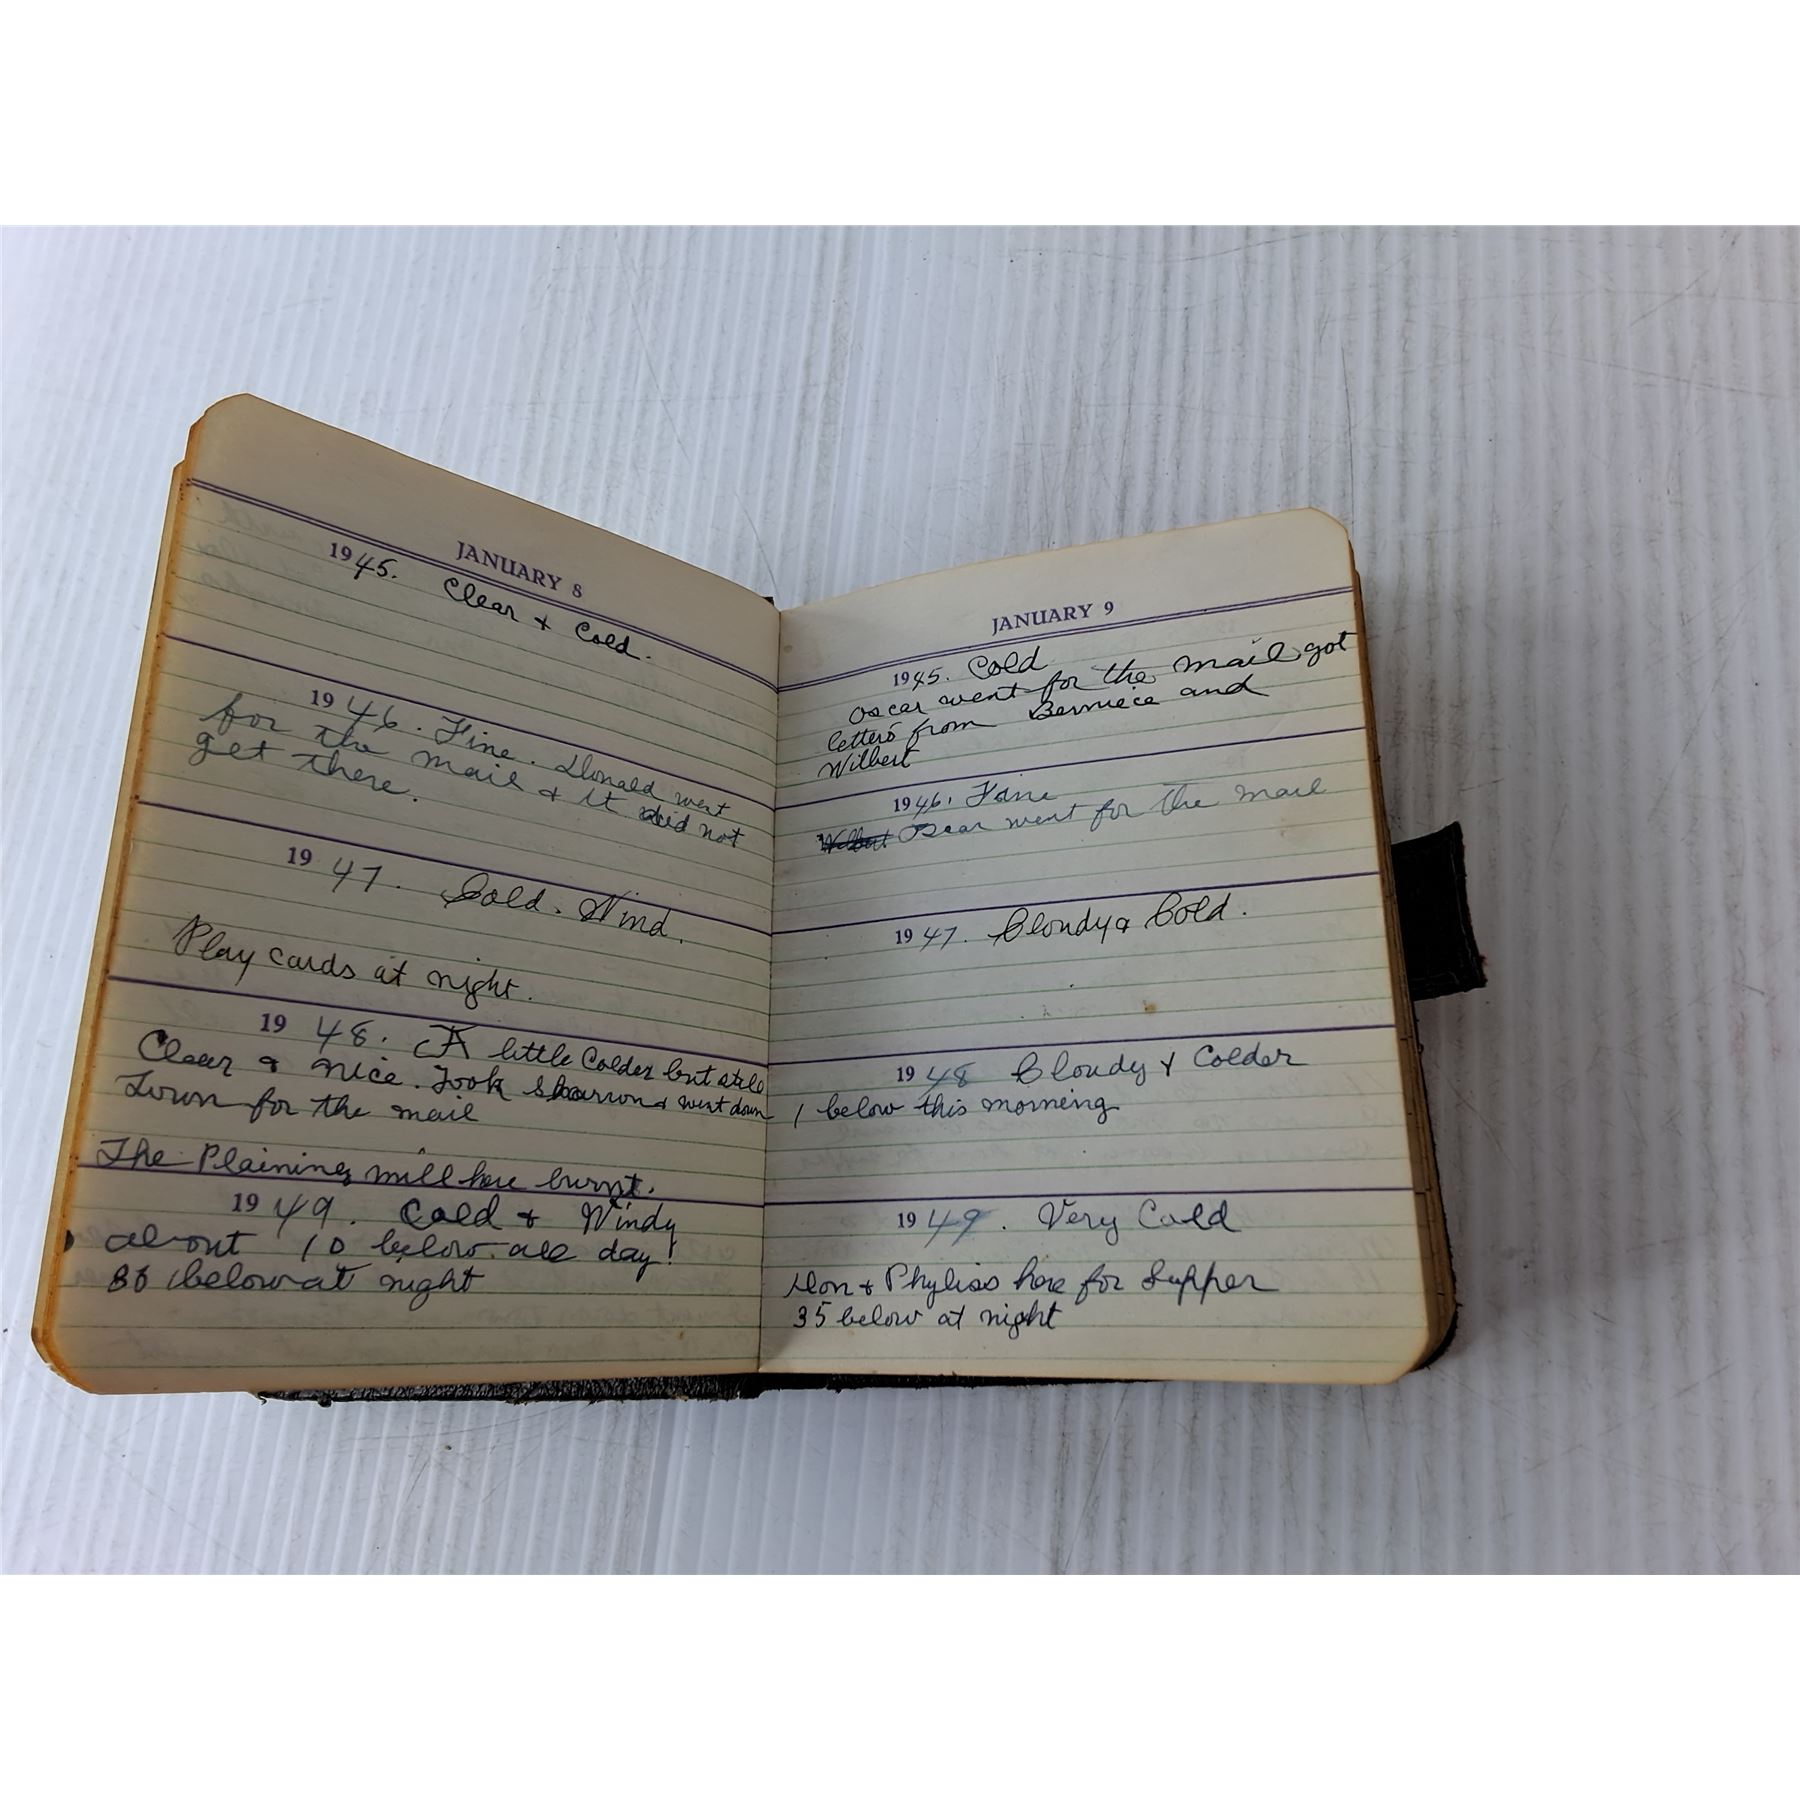 JANUARY 8
1945. Clear & Cold.
1946. Fine. Donald went
for the mail & it did not
get there.
1947. Cold. Wind.
Play cards at night.
1948. A little Colder but still
Clear & nice. Took Sharron & went down
Town for the mail
The Plaining mill here burnt.
1949. Cold & Windy
about 10 below all day!
below at night
JANUARY 9
1945. Cold
Oscar went for the mail got
letters from Berniece and
Wilbert
1946. Fine
Wilbert Oscar went for the mail
1947. Cloudy & Cold.
1948 Cloudy & Colder
1 below this morning
1949. Very Cold
Don & Phyliss here for Supper
35 below at night